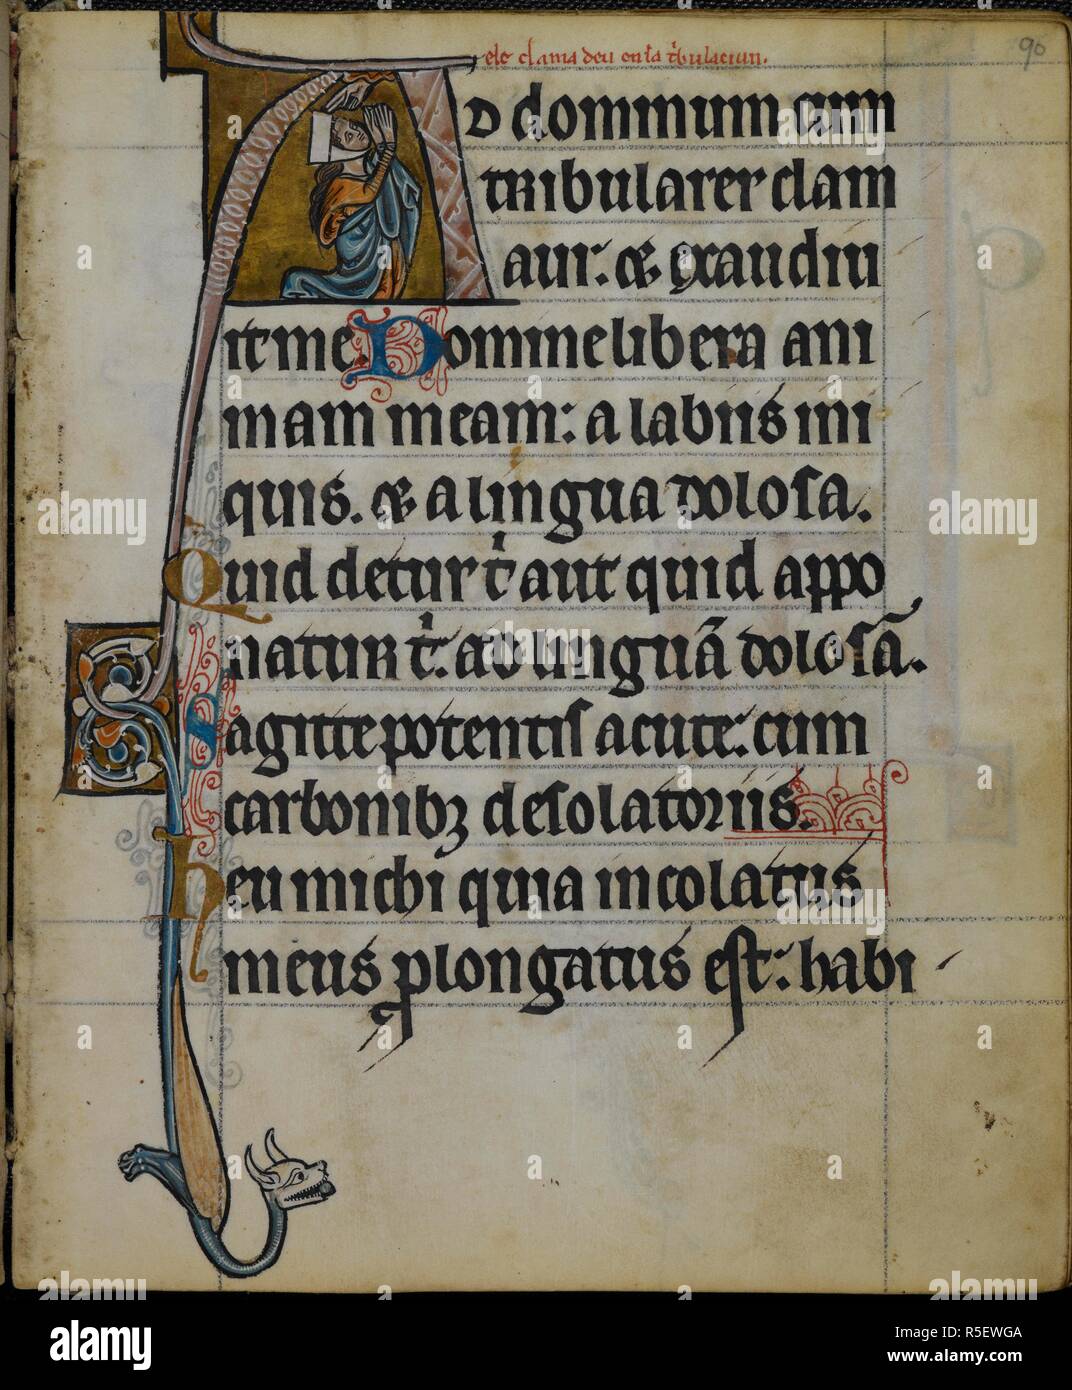 90
ele clama deu en sa t'bulaciun.
AD dominum cum
tribularer clam
aui: & exaudiu
it me. Domine libera ani
mam meam: a labiis ini
quis. & a lingua dolosa.
Quid detur t' aut quid appo
natur t'. ad linguā dolosā.
Sagitte potentis acute: cum
carbonibꝫ desolatoriis.
Heu michi quia incolatus
meus ꝓlongatus est: habi
alamy
Image ID: R5EWGA
www.alamy.com